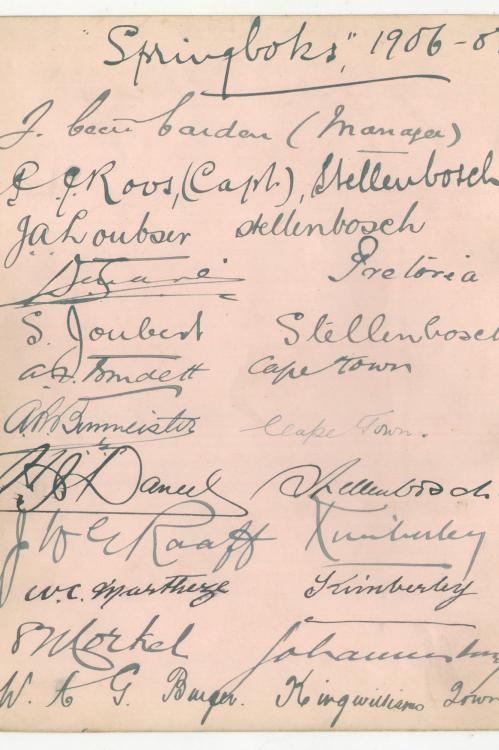 "Springboks", 1906-07
J. Cecil Carden (Manager)
P. J. Roos, (Capt.), Stellenbosch
J A Loubser Stellenbosch
Pretoria
S. Joubert Stellenbosch
Cape Town
A. R. Burmeister Cape Town.
Stellenbosch
J W E Raaff Kimberley
W. C. Martheze Kimberley
S Morkel Johannesburg
W. A G. Burger. Kingwilliams Town